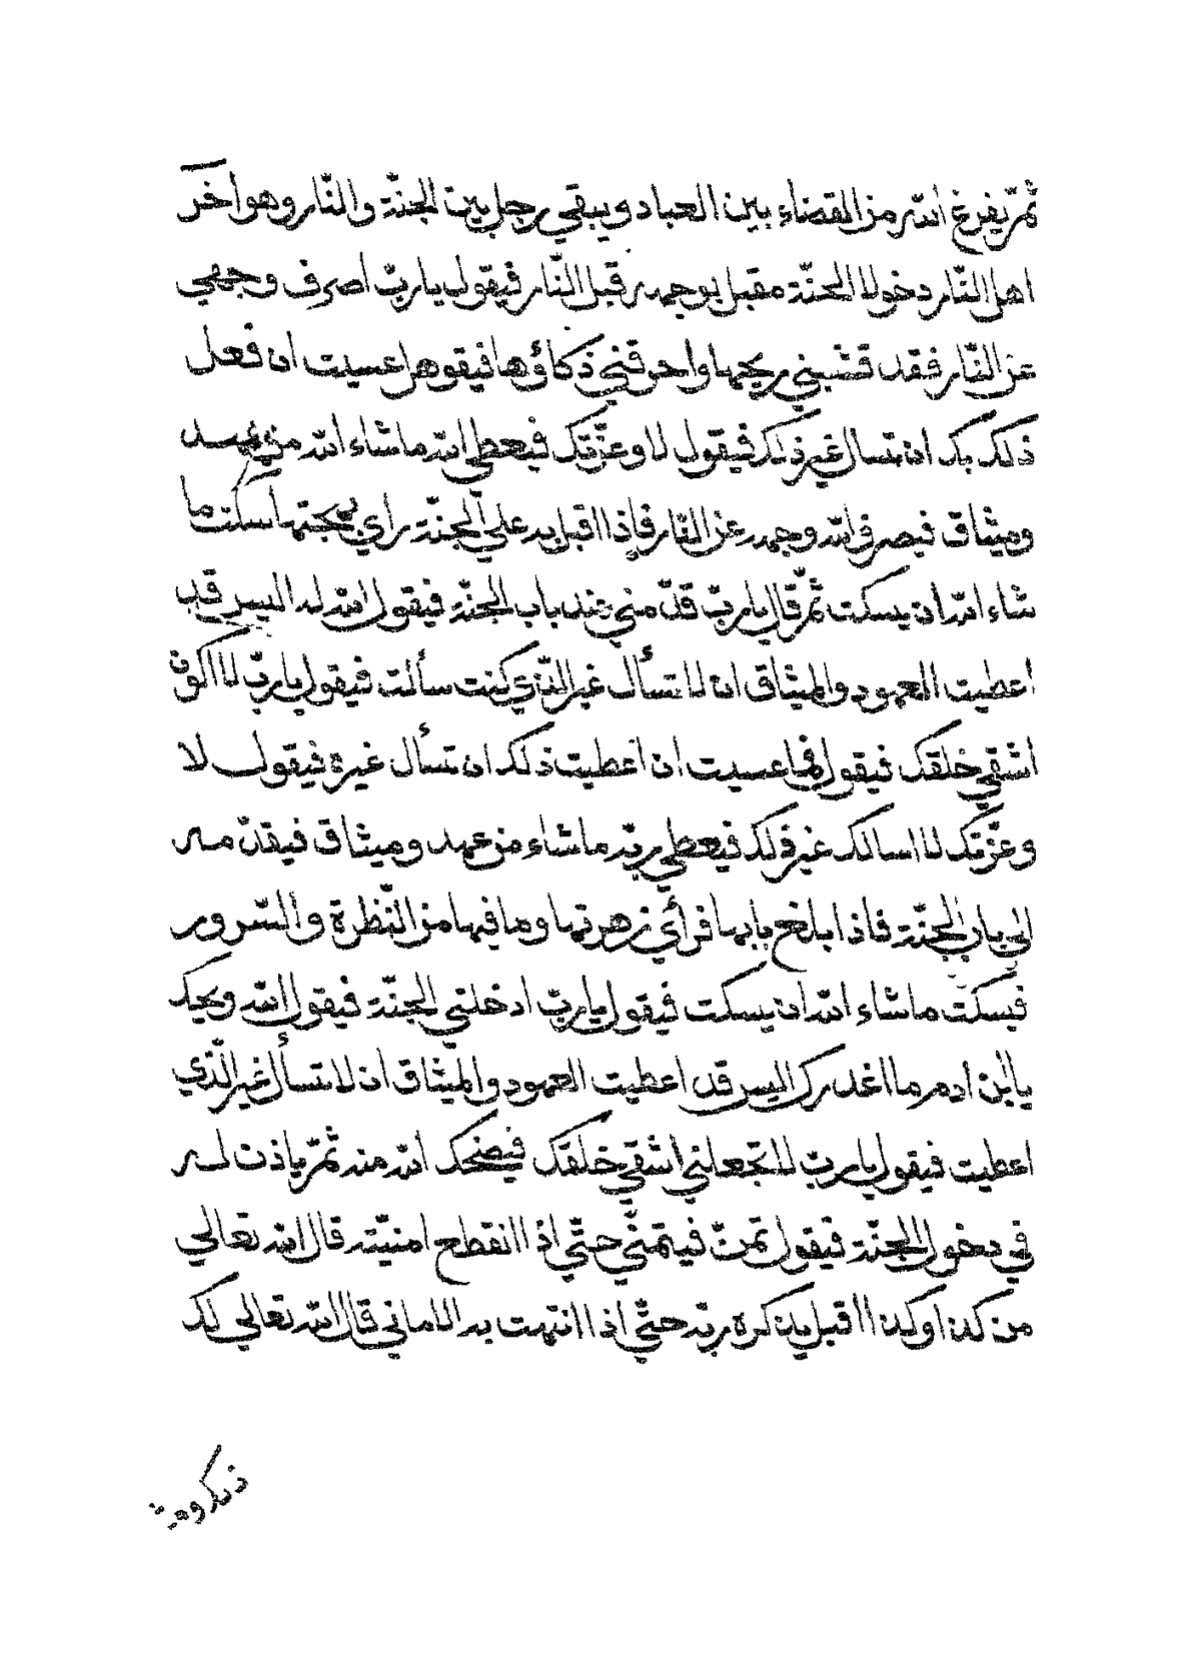 ثمّ يفرغ الله من القضاء بين العباد ويبقي رجل بين الجنّة والنّار وهو آخر
اهل النّار دخولا الجنّة مقبل بوجهه قبل النّار فيقول يا ربّ اصرف وجهي
عن النّار فقد قشبني ريحها واحرقني ذكاؤها فيقو هل عسيت ان فعل
ذلك بك ان تسال غير ذلك فيقول لا وعزّتك فيعطي الله ما شاء الله من عهد
وميثاق فيصرف الله وجهه عن النّار فإذا اقبل به علي الجنّة راي بهجتها سكت ما
شاء الله ان يسكت ثمّ قال يا ربّ قدّمني عند باب الجنّة فيقول الله له اليس قد
اعطيت العهود والميثاق ان لا تسأل غير الّذي كنت سألت فيقول يا ربّ لا اكون
اشقي خلقك فيقول فما عسيت ان اعطيت ذلك ان تسأل غيره فيقول لا
وعزّتك لا اسالك غير ذلك فيعطي ربّه ما شاء من عهد وميثاق فيقدّمه
الي باب الجنّة فاذا بلغ بابها فرأي زهرتها وما فيها من النّظرة والسّرور
فيسكت ما شاء الله ان يسكت فيقول يا ربّ ادخلني الجنّة فيقول الله ويحك
يا ابن ادم ما اغدرك اليس قد اعطيت العهود والميثاق ان لا تسأل غير الّذي
اعطيت فيقول يا ربّ لا تجعلني اشقي خلقك فيضحك الله منه ثمّ ياذن له
في دخول الجنّة فيقول تمنّ فيتمنّي حتّي اذا انقطع امنيّته قال الله تعالي
من كذا وكذا اقبل يذكره ربّه حتّي اذا انتهت به الاماني قال الله تعالي لك